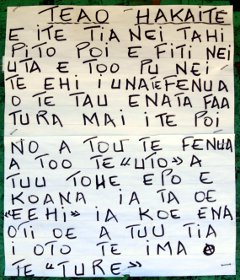 TEAO HAKAITE
E ITE TIA NEI TAHI
PITO POI E FITI NEI
UTA E TOO PU NEI
TE EHI I UNA TE FENUA
O TE TAU ENATA FAA
TURA MAI ITE POI
NO A TOU TE FENUA
A TOO TE «UTO» A
TUU TOHE EPO E
KOANA IA TA OE
«EEHI» IA KOE ENA
OTI OE A TUU TIA
I OTO TE IMA
TE "TURE"